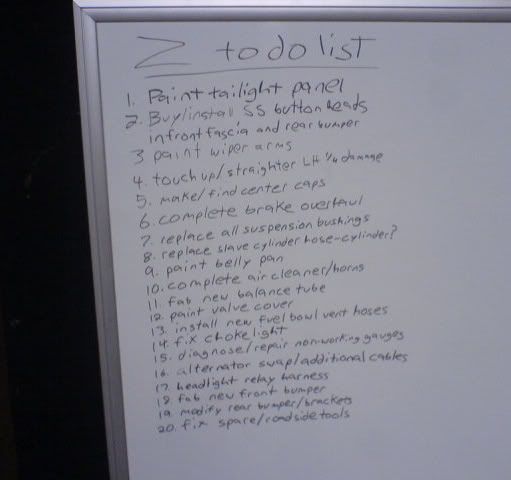 Z to do list
1. Paint tailight panel
2. Buy/install SS button heads
in front fascia and rear bumper
3 paint wiper arms
4. touch up/straighter LH 1/4 damage
5. make/find center caps
6. complete brake overhaul
7. replace all suspension bushings
8. replace slave cylinder hose-cylinder?
9. paint belly pan
10. complete air cleaner/horns
11. fab new balance tube
12. paint valve cover
13. install new fuel bowl vent hoses
14. fix choke light
15. diagnose/repair non-working gauges
16. alternator swap/additional cables
17. headlight relay harness
18. fab new front bumper
19. modify rear bumper/brackets
20. fix spare/roadside tools